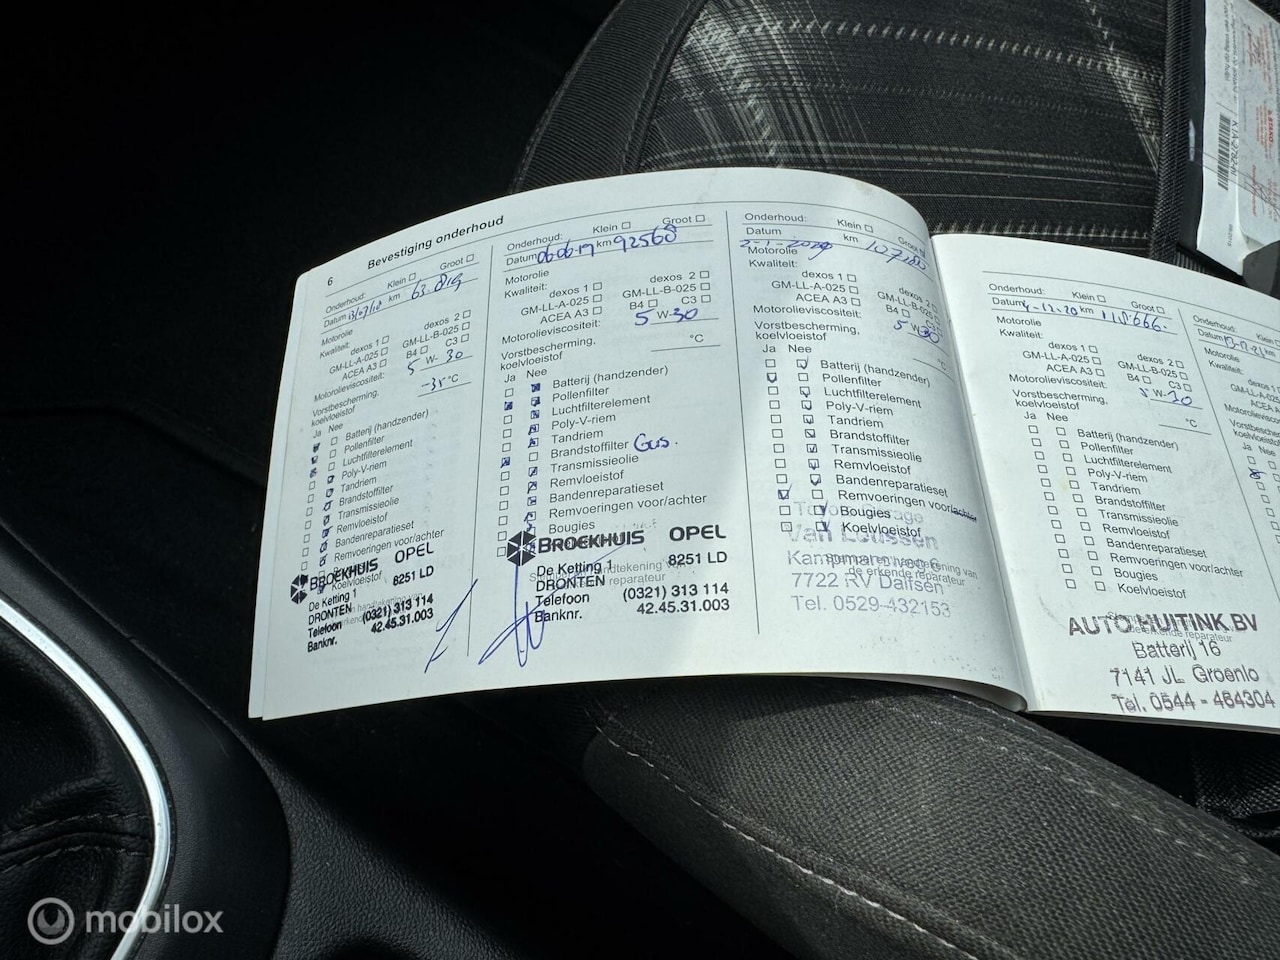 6
Bevestiging onderhoud
Onderhoud: Klein Groot
Datum 13/07/18 km 63.819
Motorolie
Kwaliteit: dexos 1 dexos 2
GM-LL-A-025 GM-LL-B-025
ACEA A3 B4 C3
Motorolieviscositeit: 5 W- 30
Vorstbescherming,
koelvloeistof -35 °C
Ja Nee
Batterij (handzender)
Pollenfilter
Luchtfilterelement
Poly-V-riem
Tandriem
Brandstoffilter
Transmissieolie
Remvloeistof
Bandenreparatieset
Remvoeringen voor/achter
Koelvloeistof
BROEKHUIS OPEL
De Ketting 1 8251 LD
DRONTEN
Telefoon (0321) 313 114
Banknr. 42.45.31.003
Onderhoud: Klein Groot
Datum 06-06-19 km 92568
Motorolie
Kwaliteit: dexos 1 dexos 2
GM-LL-A-025 GM-LL-B-025
ACEA A3 B4 C3
Motorolieviscositeit: 5 W-30
Vorstbescherming,
koelvloeistof °C
Ja Nee
Batterij (handzender)
Pollenfilter
Luchtfilterelement
Poly-V-riem
Tandriem
Brandstoffilter Gus.
Transmissieolie
Remvloeistof
Bandenreparatieset
Remvoeringen voor/achter
Bougies
BROEKHUIS OPEL
De Ketting 1 8251 LD
DRONTEN
Telefoon (0321) 313 114
Banknr. 42.45.31.003
Onderhoud: Klein Groot
Datum 2-1-2020 km 107.180
Motorolie
Kwaliteit: dexos 1
GM-LL-A-025 GM-LL-B-025
ACEA A3 B4 C3
Motorolieviscositeit: 5 W-30
Vorstbescherming,
koelvloeistof °C
Ja Nee
Batterij (handzender)
Pollenfilter
Luchtfilterelement
Poly-V-riem
Tandriem
Brandstoffilter
Transmissieolie
Remvloeistof
Bandenreparatieset
Remvoeringen voor/achter
Bougies
Koelvloeistof
Van Leussen
Kampmansweg 6
7722 RV Dalfsen
Tel. 0529-432153
Onderhoud: Klein Groot
Datum 4-12-20 km 118.666.
Motorolie
Kwaliteit: dexos 1 dexos 2
GM-LL-A-025 GM-LL-B-025
ACEA A3 B4 C3
Motorolieviscositeit: 5 W-30
Vorstbescherming,
koelvloeistof °C
Ja Nee
Batterij (handzender)
Pollenfilter
Luchtfilterelement
Poly-V-riem
Tandriem
Brandstoffilter
Transmissieolie
Remvloeistof
Bandenreparatieset
Remvoeringen voor/achter
Bougies
Koelvloeistof
AUTO HUITINK BV
Batterij 16
7141 JL Groenlo
Tel. 0544 - 464304
Onderhoud:
Datum
Motorolie
Kwaliteit:
GM-LL-A-025
ACEA
Ja Nee
mobilox